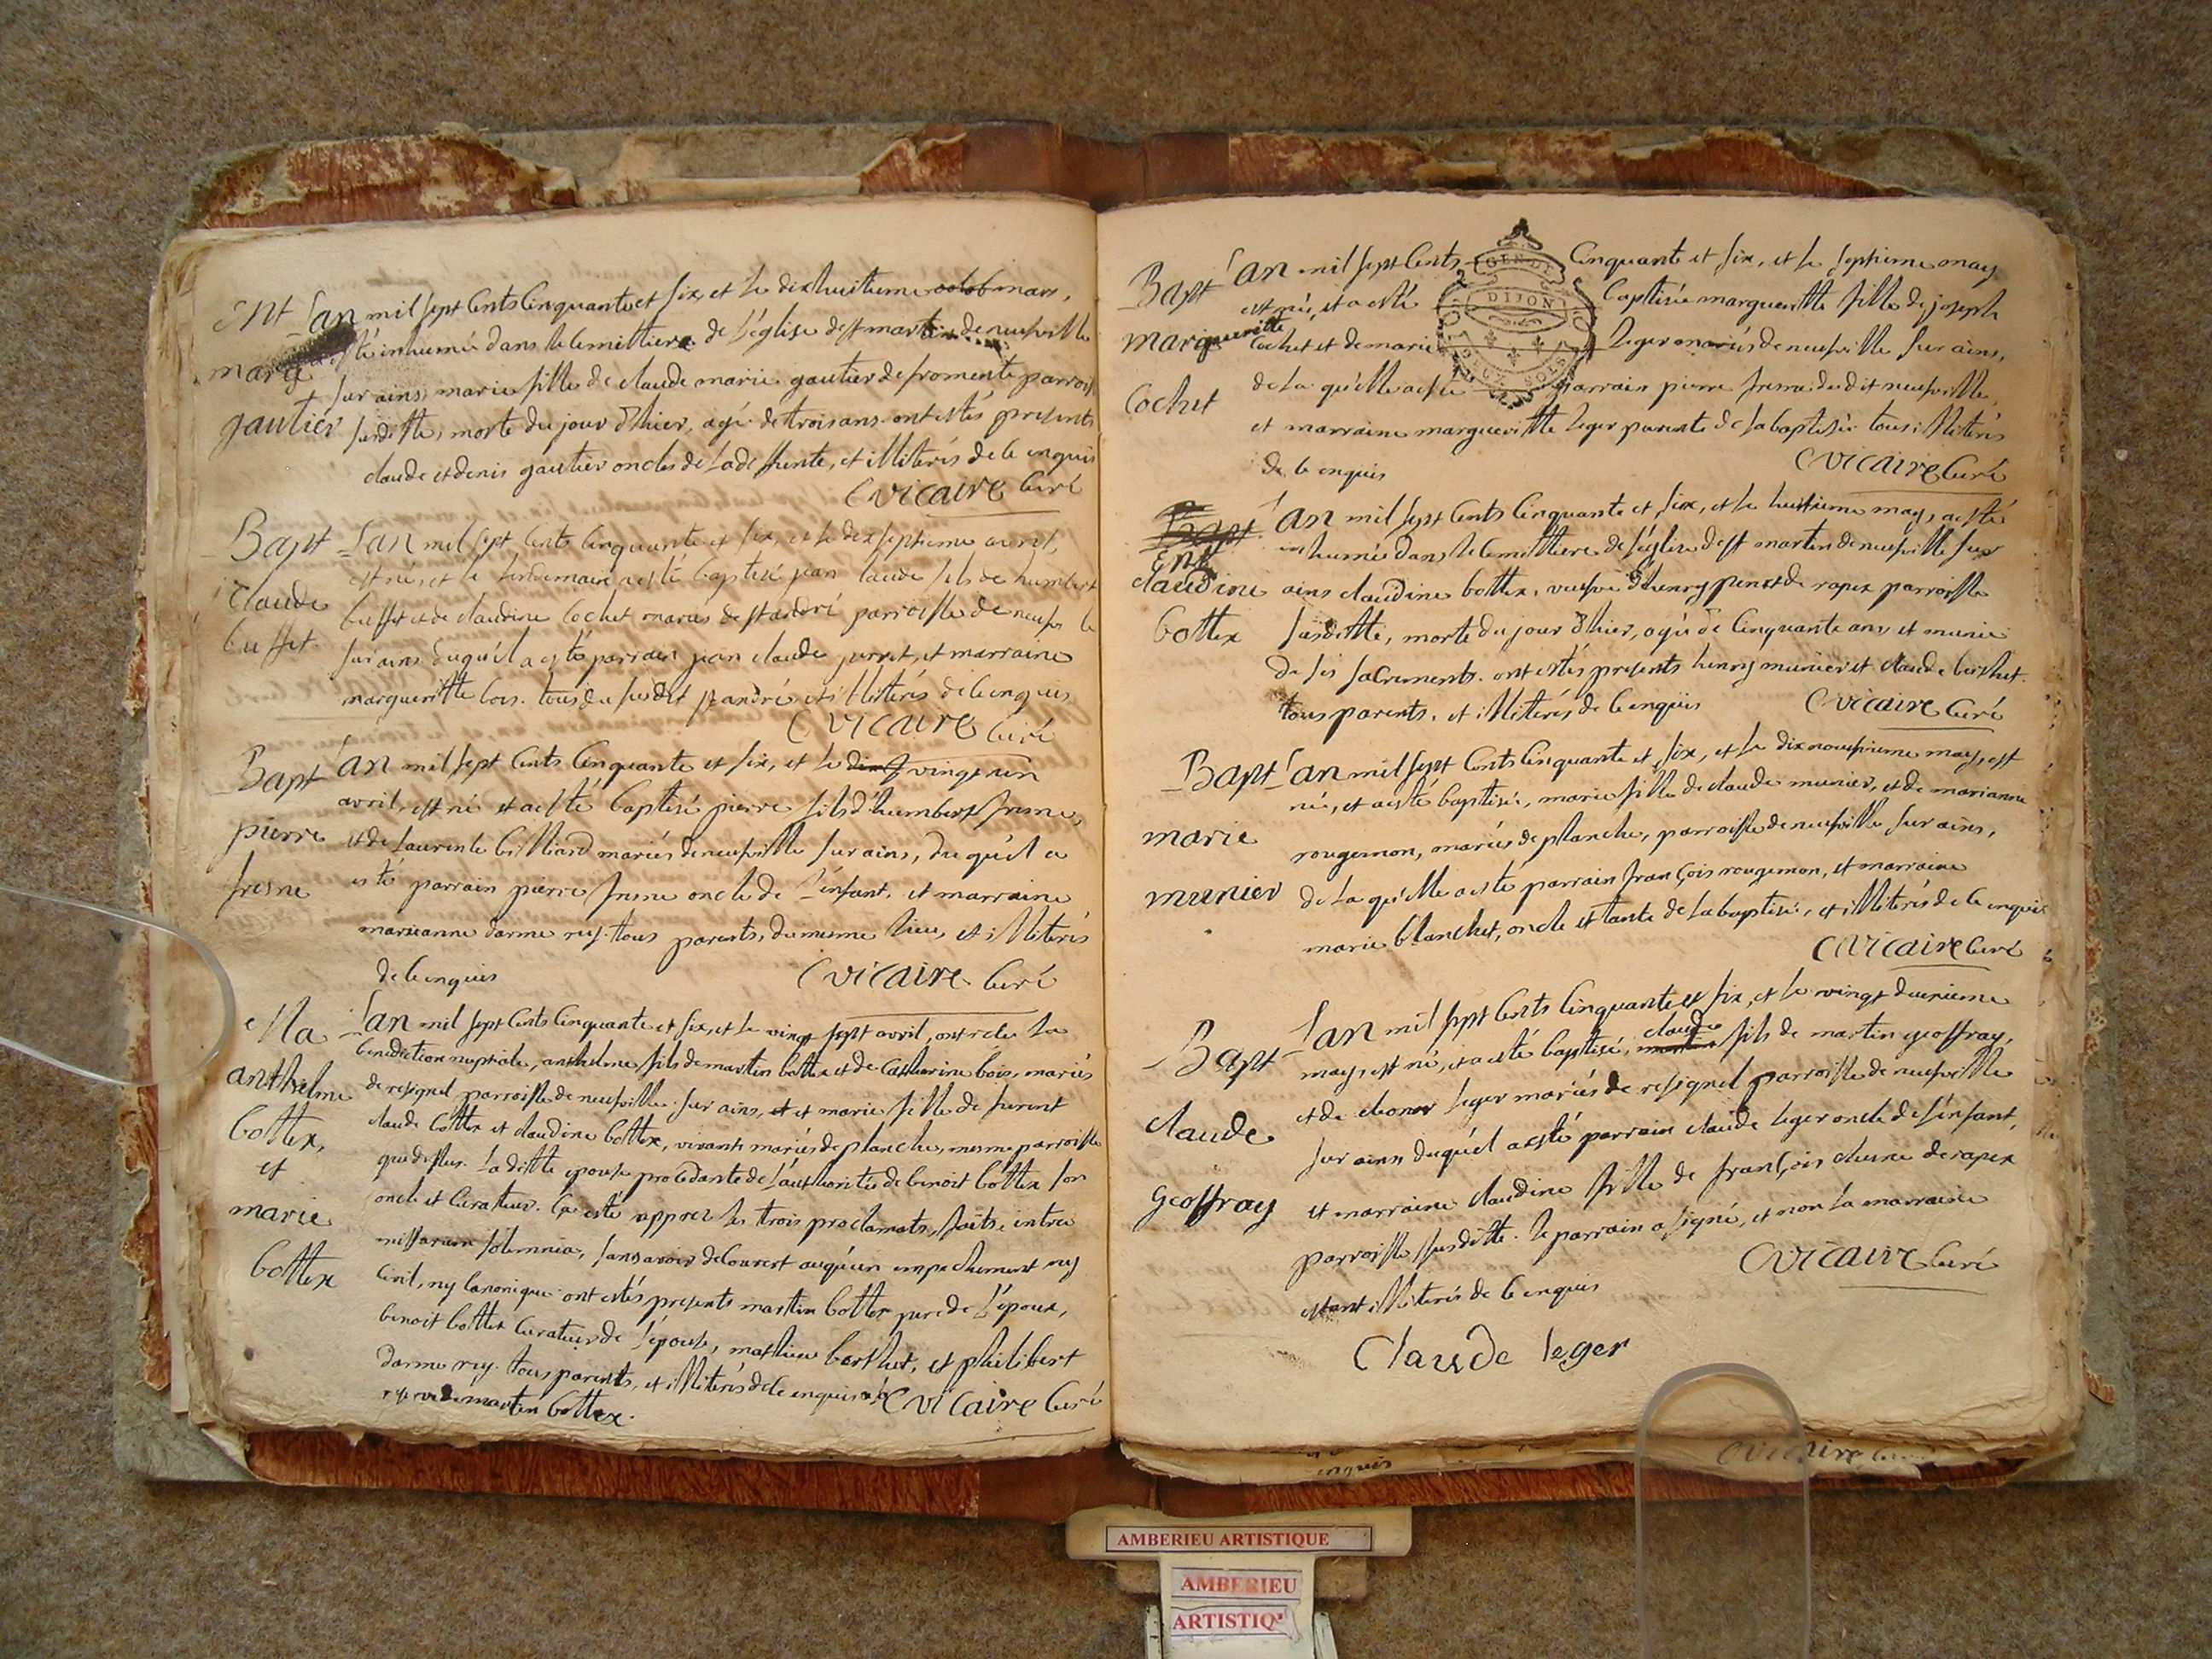 Ent L'an mil sept Cents Cinquante et six, et le dixhuitieme mars,
esté inhumée dans le Cemittiere de l'église de st martin de neufville
marie
sur ains, marie fille de claude marie gautier de fromente parroisse
gautier susditte, morte du jour d'hier, agée de trois ans. ont estés presents
claude et denis gautier oncles de la deffunte, et illiterés de ce enquis
C vicaire Curé
Bapt L'an mil sept Cents Cinquante et six, et le dixseptieme avril,
est né, et le lendemain a esté baptisé jean claude fils de humbert
claude buffet et de claudine Cochet mariés de st andré parroisse de neufville
buffet sur ains duquél a esté parrain jean claude perret, et marraine
marguerittte bois. tous du susdit st andré et illiterés de ce enquis
C vicaire Curé
Bapt L'an mil sept Cents Cinquante et six, et le vingt un
avril, est né et a esté baptisé pierre fils d'humbert fresne,
pierre et de laurente billiard mariés de neufville sur ains, duquél a
fresne esté parrain pierre fresne oncle de l'énfant, et marraine
marieanne darmerey. tous parents, du mesme lieu, et illiterés
de ce enquis C vicaire Curé
Ma L'an mil sept Cents Cinquante et six, et le vingt sept avril, ont recu la
benediction nuptiale, anthelme fils de martin bottex et de Catherine bois, mariés
anthelme de resignel parroisse de neufville sur ains, et marie fille de furent
bottex, claude bottex et claudine bottex, vivants mariés de planche, mesme parroisse
et que dessus. La ditte epouse procedante de l'authoritée de benoit bottex son
marie oncle et Curateur. Ce esté apprez les trois proclamats, faits intra
bottex missarum solemnia, sans avoir decouvert auquún empechement ny
Civil, ny Canonique. ont estés presents martin bottex pere de l'époux,
benoit bottex Curateur de l'épouse, mathieu berthet, et philibert
darmerey. tous parents, et illiterés de ce enquis C vicaire Curé
martin bottex.
Bapt L'an mil sept Cents Cinquante et six, et le septieme may
est née, et a esté baptisée margueritte fille de joseph
margueritte Cochet et de marie Leger mariés de neufville sur ains,
de la quélle a esté parrain pierre fresne du dit neufville,
Cochet et marraine margueritte Leger parente de la baptisée tous illiterés
de ce enquis C vicaire Curé
DIJON
Bapt L'an mil sept Cents Cinquante et six, et le huitieme may, a esté
Ent inhumée dans le Cemittiere de l'église de st martin de neufville sur
claudine ains claudine bottex, veufve d'henry penet de rapex parroisse
bottex susditte, morte du jour d'hier, agée de Cinquante ans et munie
de ses sacrements. ont estés presents henry munier et claude berthet.
tous parents, et illiterés de ce enquis C vicaire Curé
Bapt L'an mil sept Cents Cinquante et six, et le dixneufvieme may, est
née, et a esté baptisée, marie fille de claude munier, et de marianne
marie rougemon, mariés de planche, parroisse de neufville sur ains,
munier de la quélle a esté parrain françois rougemon, et marraine
marie blanchet, oncle et tante de la baptisée, et illiterés de ce enquis
C vicaire Curé
L'an mil sept Cents Cinquante et six, et le vingt deuxieme
Bapt may, est né, et a esté baptisé, claude fils de martin geoffray,
et de Leger mariés de resignel parroisse de neufville
claude sur ains duquél a esté parrain claude Leger oncle de l'énfant,
geoffray et marraine claudine fille de françois chesne de rapex
parroisse susditte. le parrain a signé, et non la marraine
estant illiterée de ce enquis C vicaire Curé
Claude leger
enquis
C vicaire
AMBERIEU ARTISTIQUE
AMBERIEU
ARTISTIQ